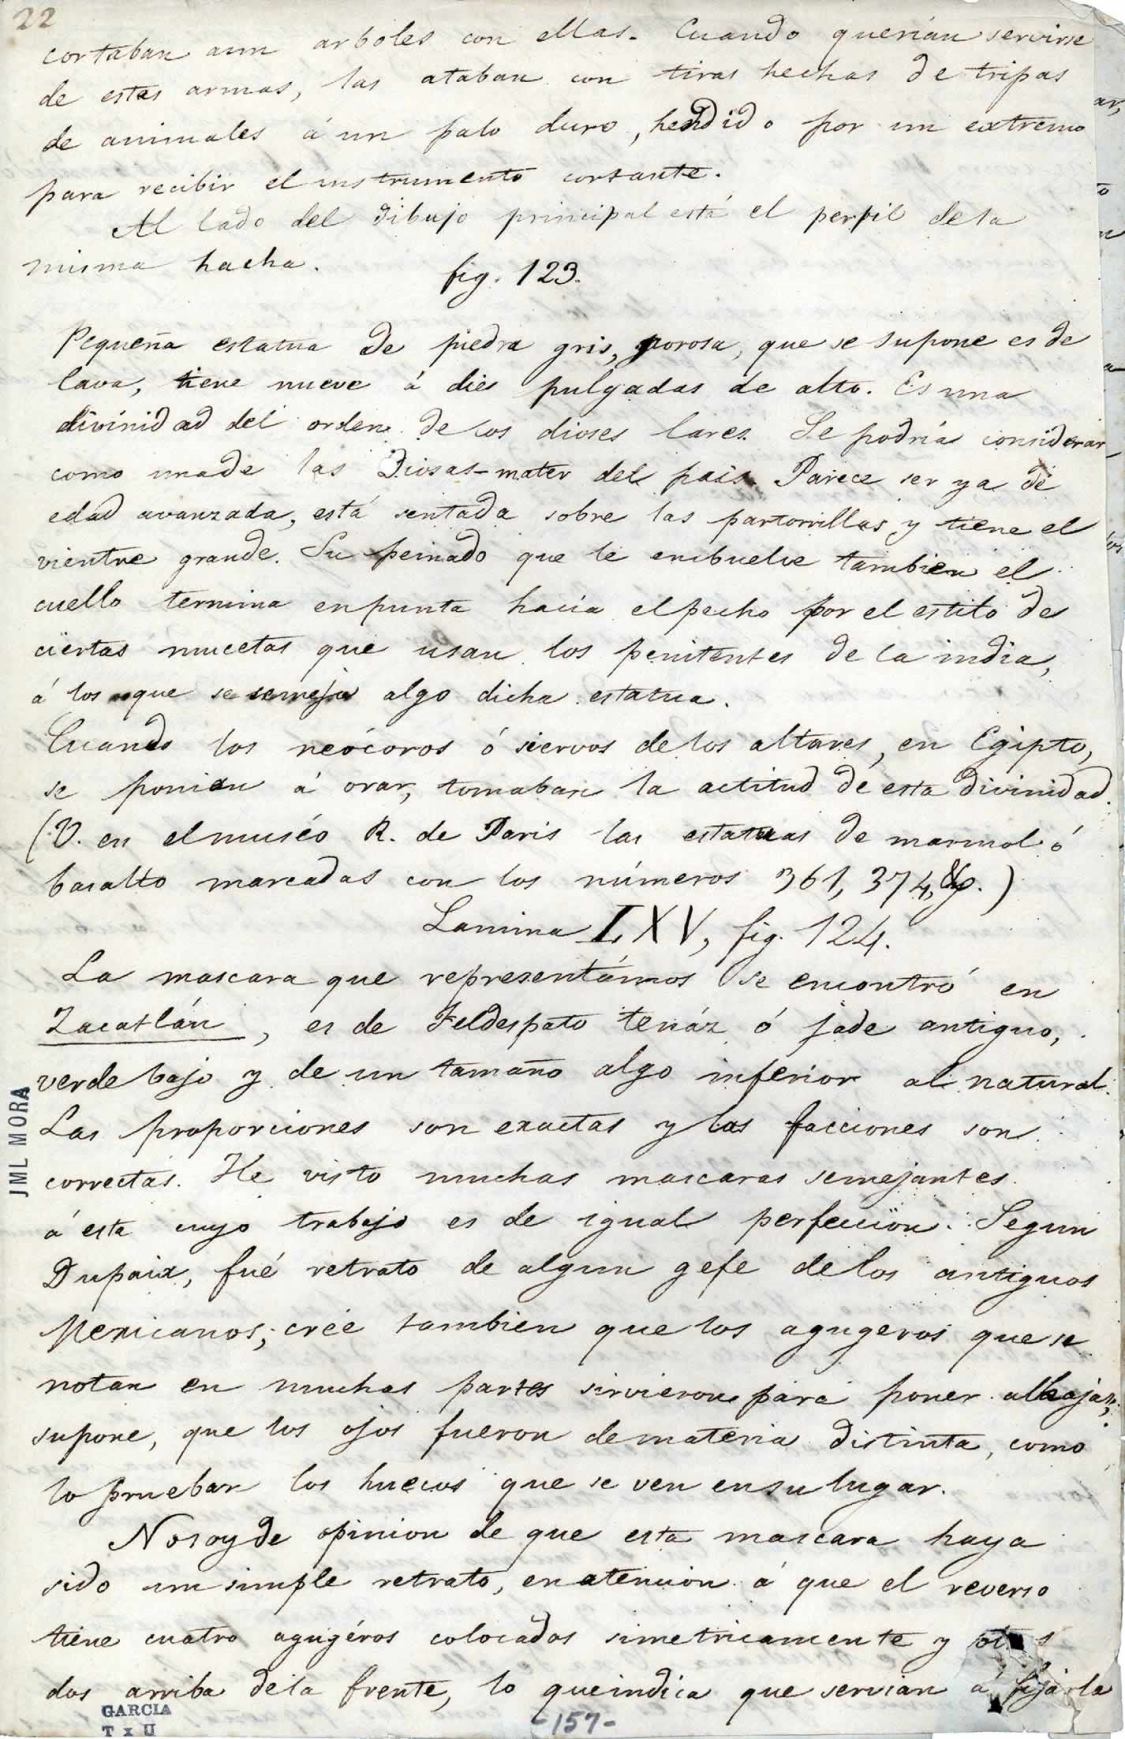 22
cortaban aun arboles con ellas. Cuando querían servirse
de estas armas, las ataban con tiras hechas de tripas
de animales á un palo duro, hendido por un extremo
para recibir el instrumento cortante.
Al lado del dibujo principal está el perfil de la
misma hacha.
fig. 123.
Pequeña estatua de piedra gris, porosa, que se supone es de
lava, tiene nueve á dies pulgadas de alto. Es una
divinidad del orden de los dioses lares. Se podría considerar
como una de las Diosas-mater del pais. Parece ser ya de
edad avanzada, está sentada sobre las pantorrillas y tiene el
vientre grande. Su peinado que le embuelve tambien el
cuello termina en punta hacia el pecho por el estilo de
ciertas mucetas que usan los penitentes de la india,
á los que se semeja algo dicha estatua.
Cuando los neócoros ó siervos de los altares, en Egipto,
se ponian á orar, tomaban la actitud de esta divinidad.
(V. en el muséo R. de Paris las estatuas de marmol ó
basalto marcadas con los números 361, 374, &.)
Lamina LXV, fig. 124.
La mascara que representámos se encontró en
Zacatlán, es de Feldespato tenáz ó jade antiguo,
verde bajo y de un tamaño algo inferior al natural.
Las proporciones son exactas y las facciones son
correctas. He visto muchas mascaras semejantes
á esta cuyo trabajo es de igual perfeccion. Segun
Dupaix, fué retrato de algun gefe de los antiguos
Mexicanos; crée tambien que los agugeros que se
notan en muchas partes sirvieron para poner alhajas;
supone, que los ojos fueron de materia distinta, como
lo prueban los huecos que se ven en su lugar.
No soy de opinion de que esta mascara haya
sido un simple retrato, en atencion á que el reverso
tiene cuatro agugéros colocados simetricamente y otros
dos arriba de la frente, lo que indica que servian á fijarla
JML MORA
GARCIA
T x U
-157-